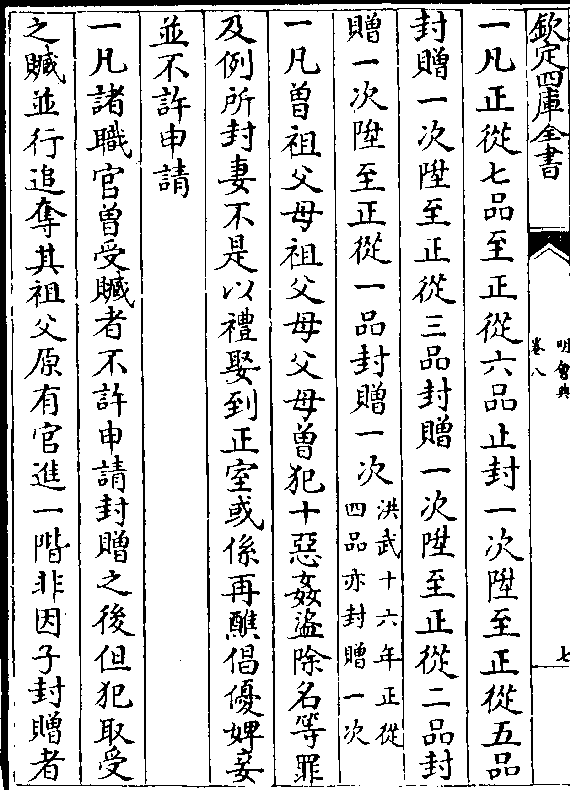 欽定四庫全書
明會典
卷八
七
一凡正從七品至正從六品止封一次陞至正從五品
封贈一次陞至正從三品封贈一次陞至正從二品封
贈一次陞至正從一品封贈一次洪武十六年正從
四品亦封贈一次
一凡曽祖父母祖父母父母曽犯十惡姦盜除名等罪
及例所封妻不是以禮娶到正室或係再醮倡優婢妾
並不許申請
一凡諸職官曽受贓者不許申請封贈之後但犯取受
之贓並行追奪其祖父原有官進一階非因子封贈者